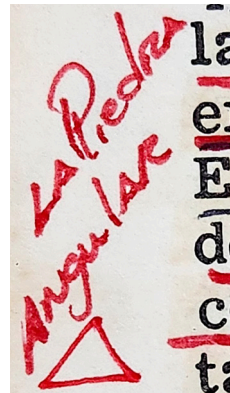 LA Piedra
AnguLAR
la
E
d
c
ta